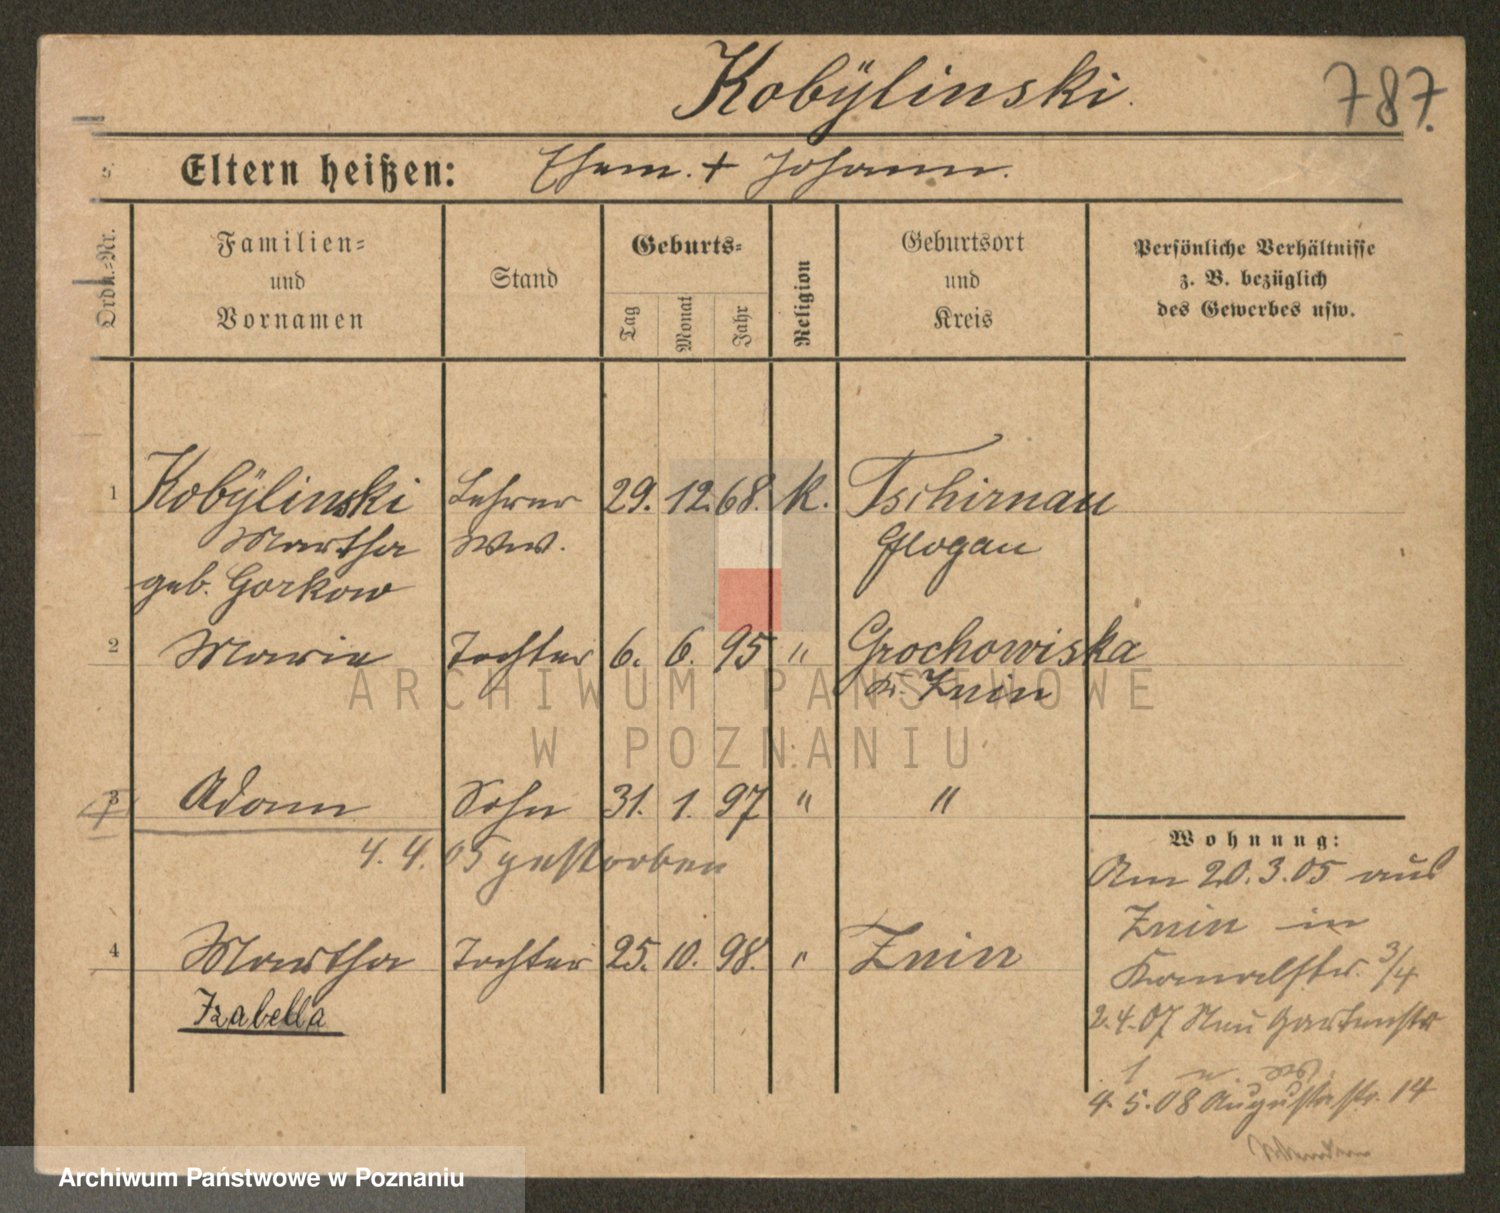 Kobÿlinski.
787.
Eltern heißen: Ehem. + Johann.
Ordn.-Nr.
Familien-
und
Vornamen
Stand
Geburts-
Tag
Monat
Jahr
Religion
Geburtsort
und
Kreis
Persönliche Verhältnisse
z. B. bezüglich
des Gewerbes usw.
1 Kobÿlinski Lehrer 29. 12. 68. K. Tschirnau
Martha Ww. Glogau
geb. Gorkow
2 Marie Tochter 6. 6. 95 " Grochowiska
Kr. Znin
3 Adam Sohn 31. 1. 97 " "
4. 4. 05 gestorben
Wohnung:
Am 20.3.05 aus
Znin in
3/4
4 Martha Tochter 25. 10. 98. " Znin
Izabella
2.4.07 Neu Gartenstr
1
4.5.08 Augustastr. 14
ARCHIWUM PAŃSTWOWE
W POZNANIU
Archiwum Państwowe w Poznaniu